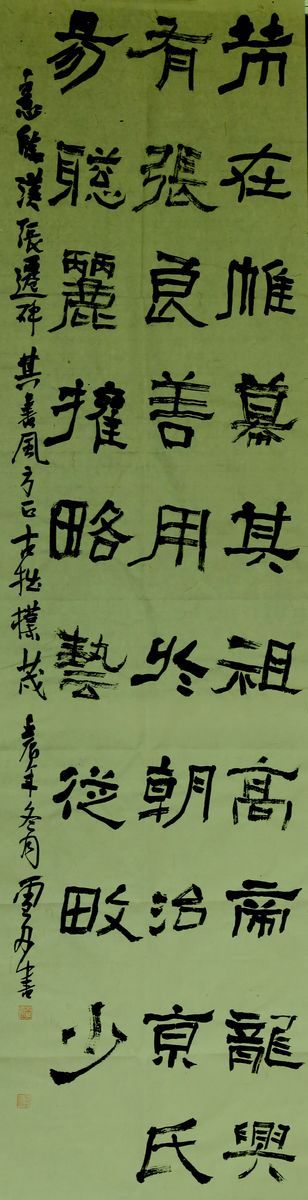 策在帷幕其祖高帝龍興
有張良善用於朝治京氏
易聰麗權略藝從畋少
意臨漢張遷碑 其書風方正古拙樸茂 未冬月 書